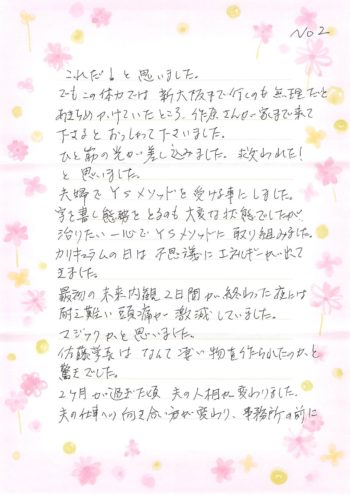 No 2
これだ！と思いました。
でもこの体力では 新大阪まで行くのも無理だと
あきらめかけていたところ、作原さんが家まで来て
下さるとおっしゃって下さいました。
ひと筋の光が差し込みました。救われた！
と思いました。
夫婦でYSメソッドを受ける事にしました。
字を書く態勢をとるのも大変な状態でしたが、
治りたい一心でYSメソッドに取り組みました。
カリキュラムの日は不思議にエネルギーが出て
きました。
最初の未来内観2日間が終わった夜には
耐え難い頭痛が激減していました。
マジックかと思いました。
佐藤学長はなんて凄い物を作られたのかと
驚きでした。
2ヶ月が過ぎた頃 夫の人相が変わりました。
夫の仕事への向き合い方が変わり、事務所の前に